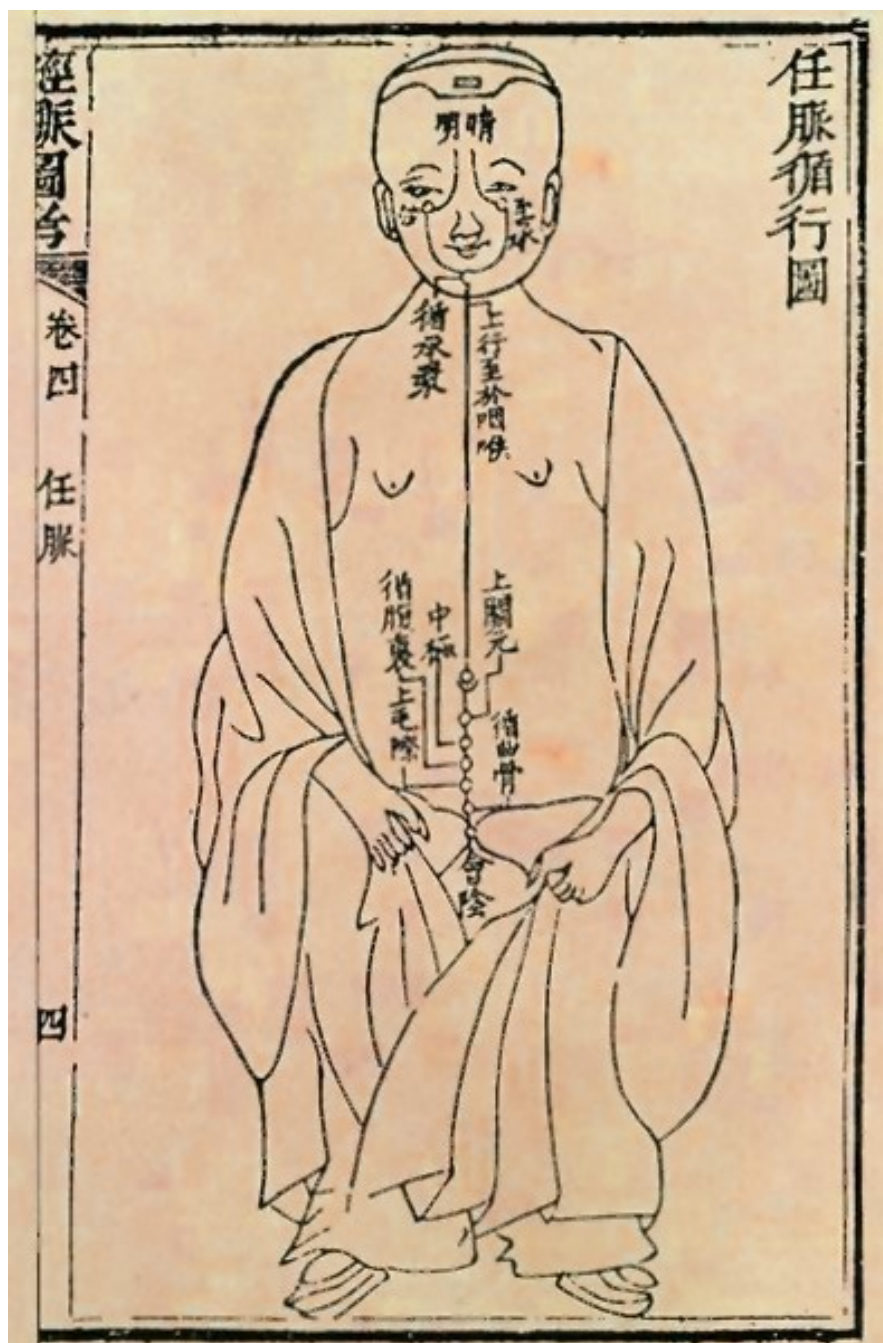 任脈循行圖
睛明
至承
泣
上行至於咽喉
循承漿
上關元
中極
循腹裏上毛際
循曲骨
會陰
經脈圖考
卷四
任脈
四